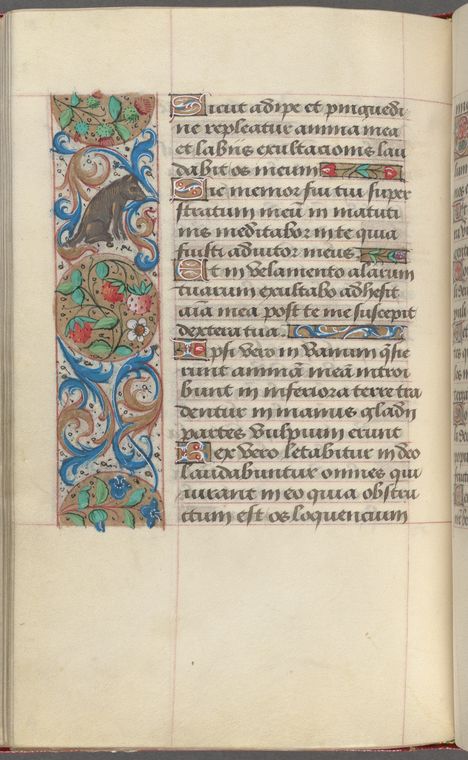 Sicut adipe et pinguedi
ne repleatur anima mea
et labiis exultacionis lau
dabit os meum
Sic memor fui tui super
stratum meū in matuti
nis meditabor in te quia
fuisti adiutor meus
Et in velamento alarum
tuarum exultabo adhesit
aīa mea post te me suscepit
dextera tua
Ipsi vero in vanum q̄sie
runt animā meā introi
bunt in inferiora terre tra
dentur in manus gladii
partes vulpium erunt
Rex vero letabitur in deo
laudabuntur omnes qui
iurant in eo quia obstru
ctum est os loquencium